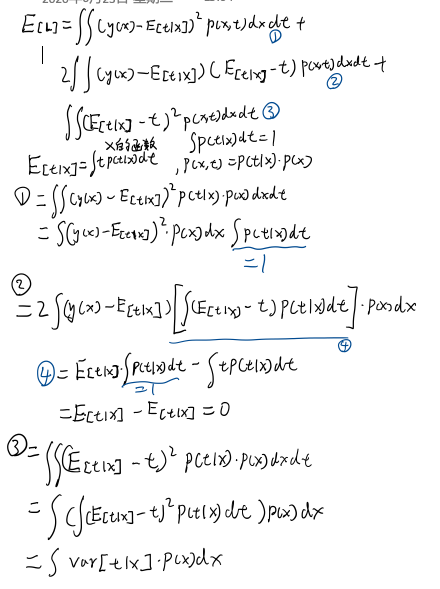 E[L] = ∬ (y(x) - E[t|x])² p(x,t) dx dt + ①
2∬ (y(x) - E[t|x]) (E[t|x] - t) p(x,t) dx dt + ②
∬ (E[t|x] - t)² p(x,t) dx dt ③
x的函数 ∫ p(t|x) dt = 1
E[t|x] = ∫ t p(t|x) dt , p(x,t) = p(t|x)·p(x)
① = ∬ (y(x) - E[t|x])² p(t|x)·p(x) dx dt
= ∫ (y(x) - E[t|x])²·p(x) dx ∫ p(t|x) dt
= 1
②
= 2∫ (y(x) - E[t|x]) [∫ (E[t|x] - t) p(t|x) dt]·p(x) dx
④
④ = E[t|x]·∫ p(t|x) dt - ∫ t p(t|x) dt
= 1
= E[t|x] - E[t|x] = 0
③ = ∬ (E[t|x] - t)² p(t|x)·p(x) dx dt
= ∫ (∫ (E[t|x] - t)² p(t|x) dt) p(x) dx
= ∫ var[t|x]·p(x) dx